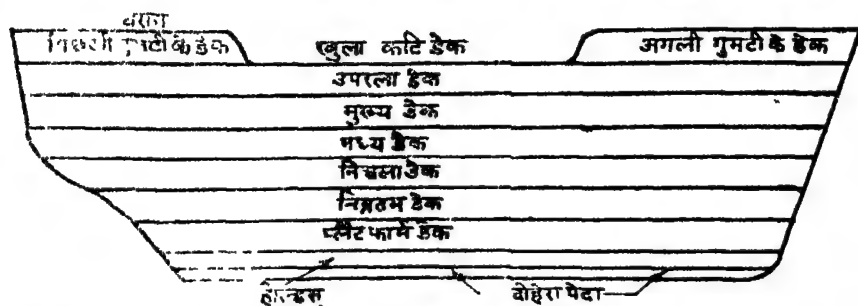 पिछली गुमटी के डेक
खुला कटि डेक
अगली गुमटी के डेक
उपरला डेक
मुख्य डेक
मध्य डेक
निचला डेक
निम्नतम डेक
प्लैटफार्म डेक
होल्डस
दोहरा पेंदा